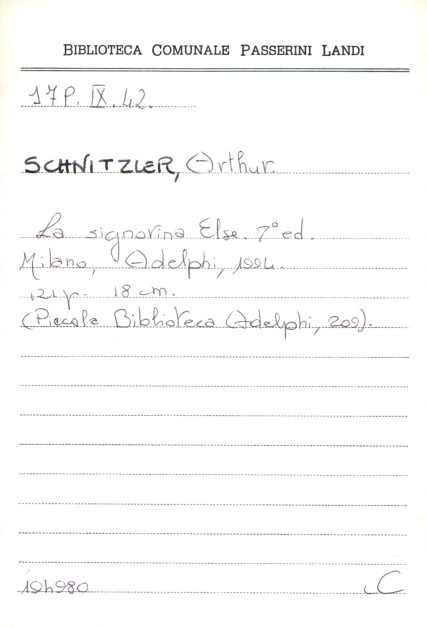 BIBLIOTECA COMUNALE PASSERINI LANDI
17P. IX. 42.
SCHNITZLER, Arthur.
La signorina Else. 7° ed.
Milano, Adelphi, 1994.
121 p. 18 cm.
(Piccola Biblioteca Adelphi, 209).
194980
C